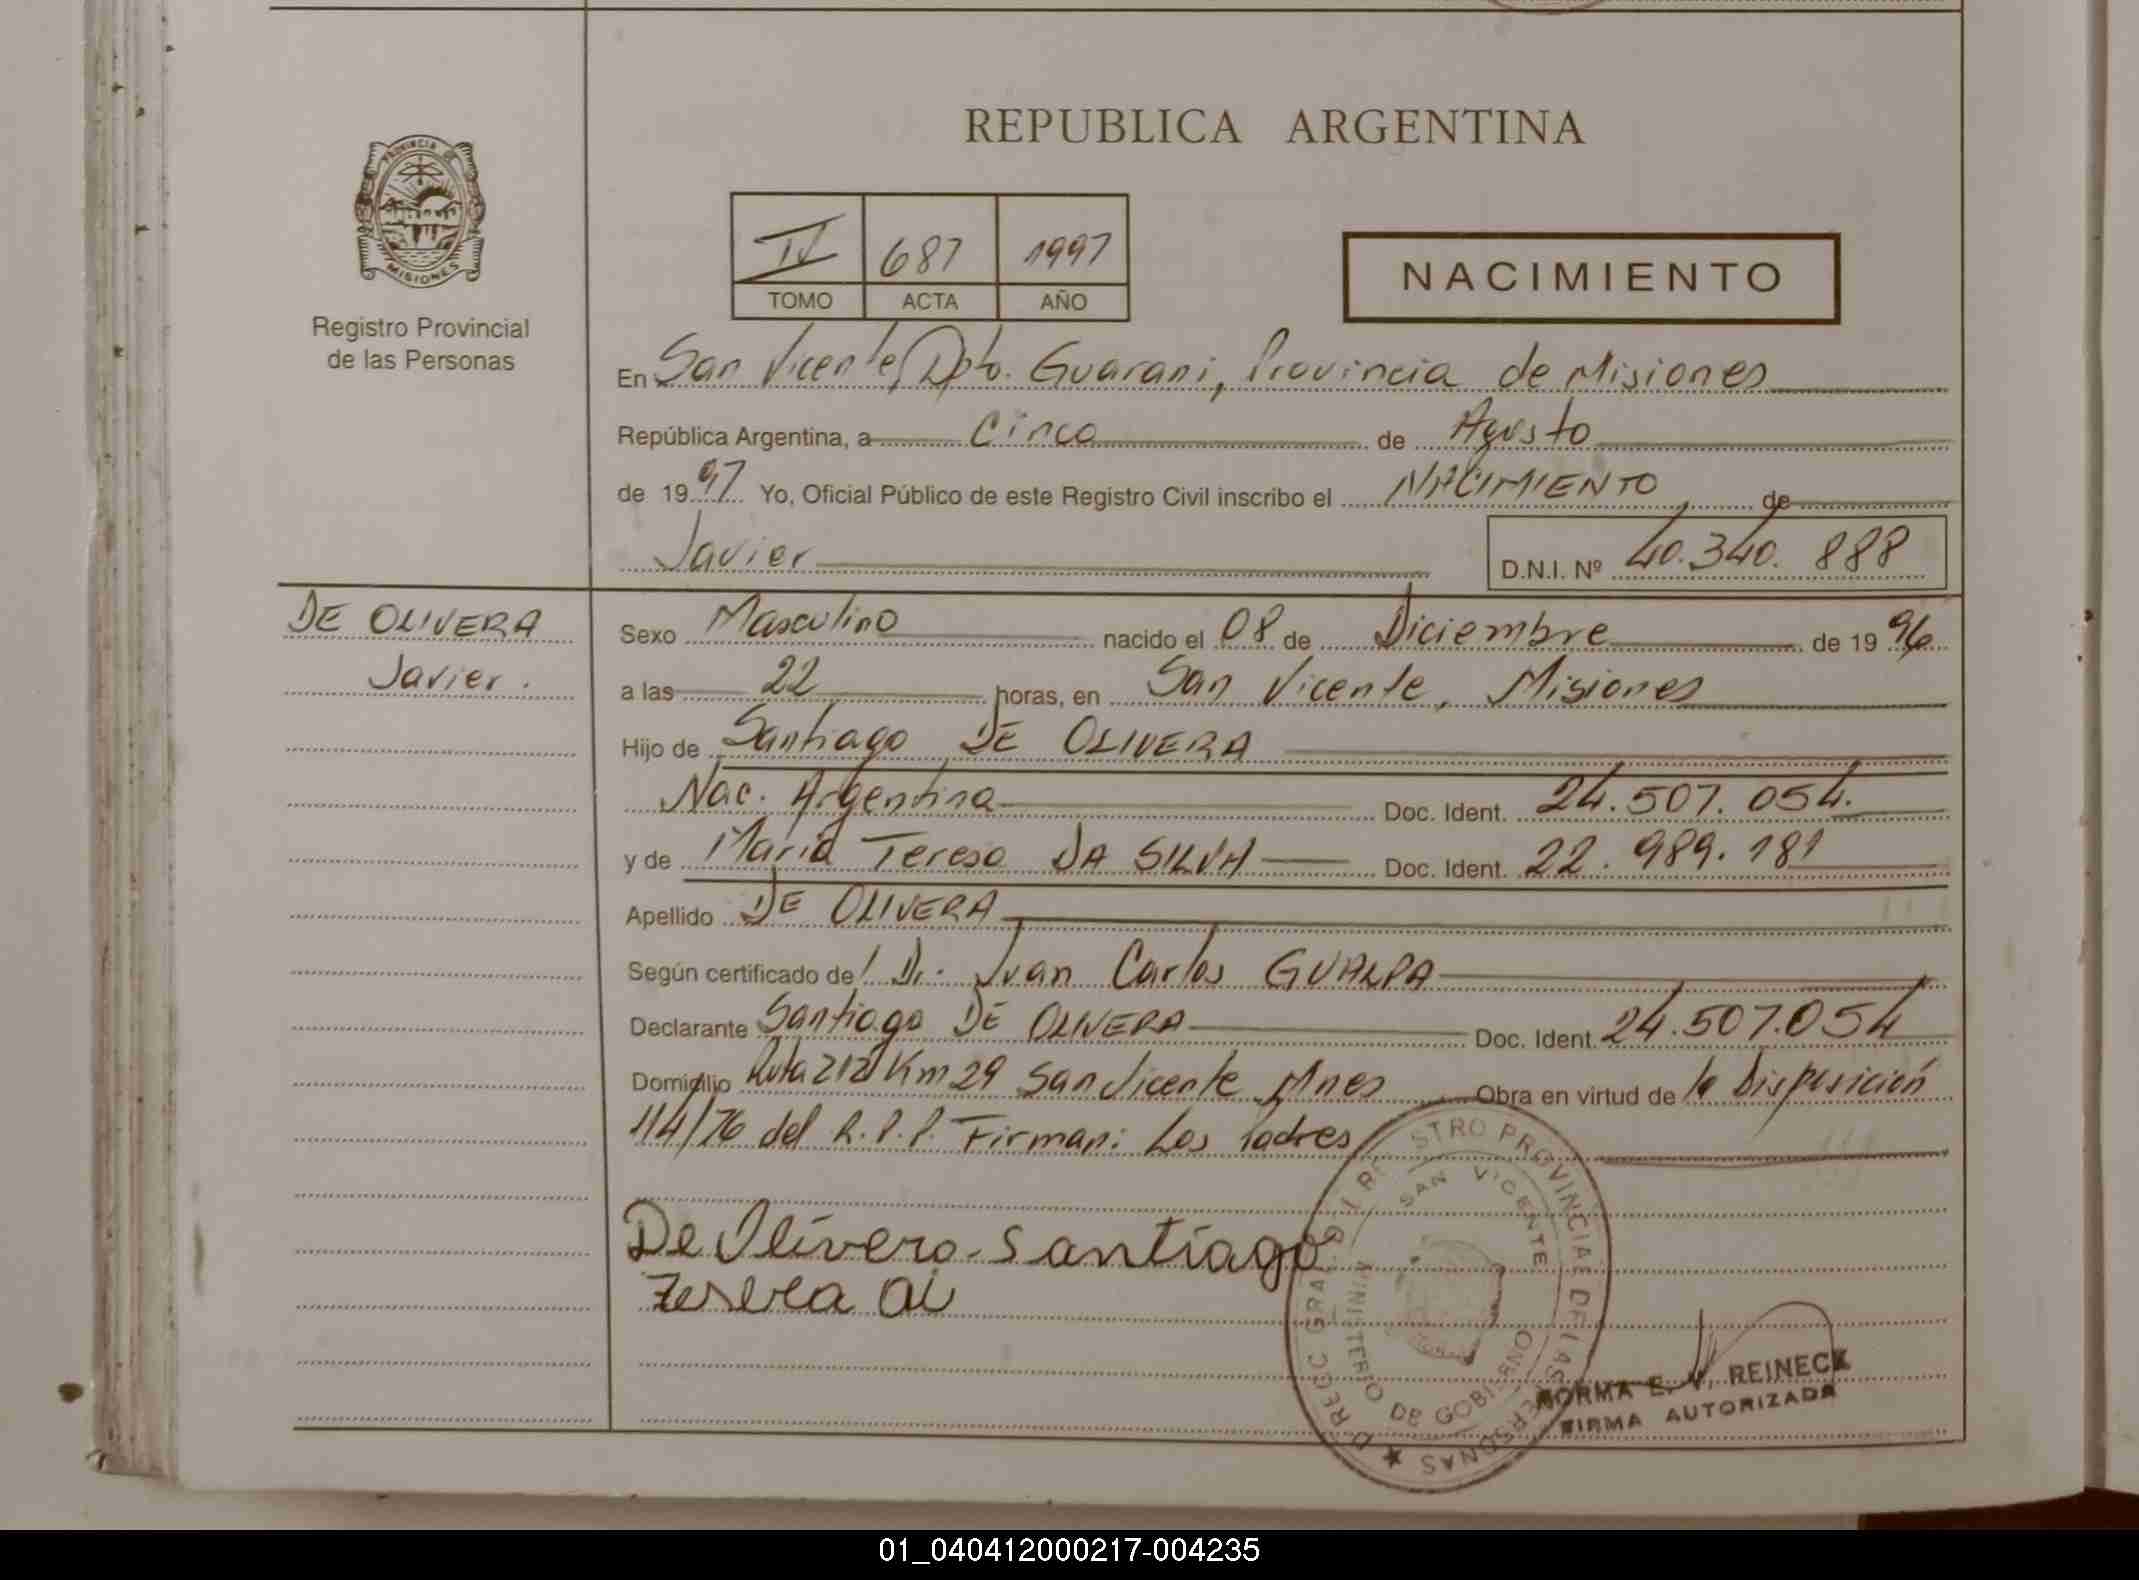 REPUBLICA ARGENTINA
PROVINCIA DE
MISIONES
Registro Provincial
de las Personas
IV 687 1997
TOMO ACTA AÑO
NACIMIENTO
En San Vicente, Dpto. Guarani, Provincia de Misiones
República Argentina, a cinco de Agosto
de 1997 Yo, Oficial Público de este Registro Civil inscribo el NACIMIENTO de
Javier D.N.I. Nº 40.340.888
DE OLIVERA
Javier.
Sexo Masculino nacido el 08 de Diciembre de 1996
a las 22 horas, en San Vicente, Misiones
Hijo de Santiago DE OLIVERA
Nac. Argentina Doc. Ident. 24.507.054.
y de Maria Teresa DA SILVA Doc. Ident. 22.989.181
Apellido DE OLIVERA
Según certificado de Dr. Juan Carlos GUALPA
Declarante Santiago DE OLIVERA Doc. Ident. 24.507.054
Domicilio Ruta 212 Km 29 San Vicente Mnes Obra en virtud de la Disposición
114/76 del R.P.P. Firman: Los Padres
De Olivera Santiago
DIRECC GRAL D I REGISTRO PROVINCIAL DE LAS PERSONAS
SAN VICENTE
MINISTERIO DE GOBIERNO
NORMA E. V. REINECK
FIRMA AUTORIZADA
01_040412000217-004235